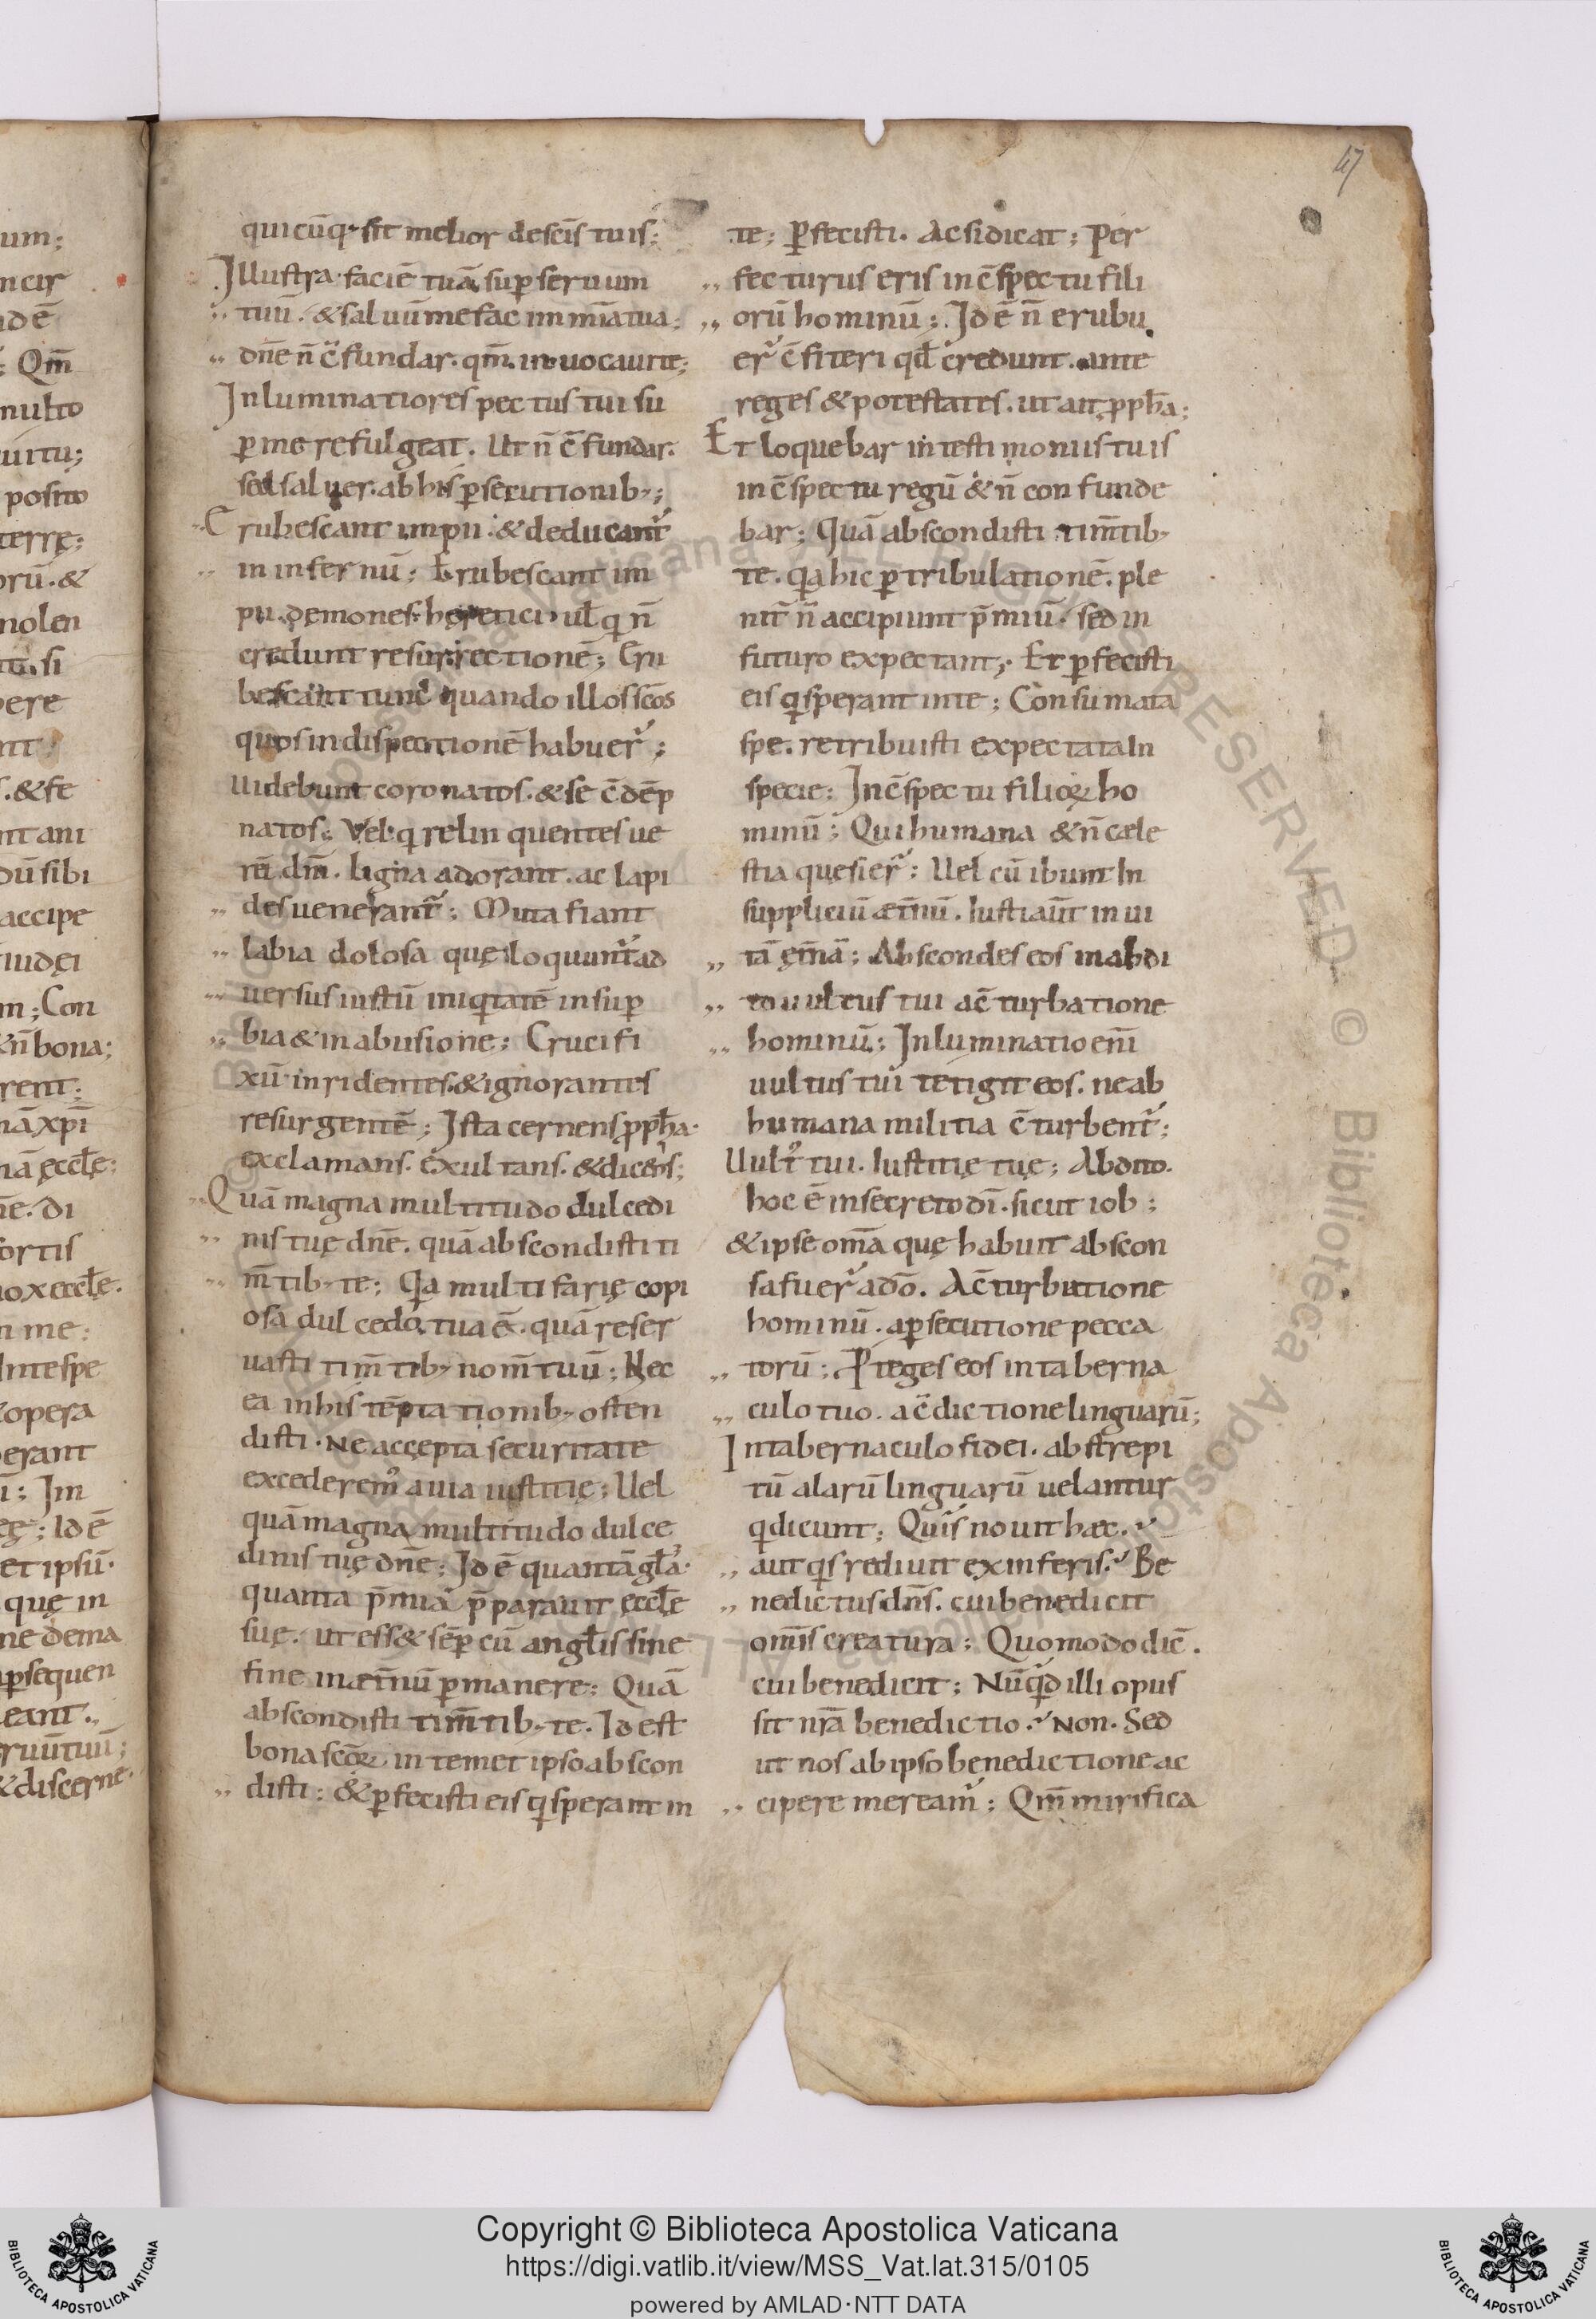 47
um;
ncir
idē
; Qm̄
multo
uitu;
posito
terrę;
orū. &
nolen
tu. si
pere
nt
s. & fe
nt ani
dū sibi
accipe
iudęi
m; Con
& n̄ bona;
rent;
nā xp̄i
nā ęccłę;
n̄e. di
fortis
uox ęccłę.
n me:
In te spe
& opera
perant
i; Im
eę; Id ē
et ipsū.
quę in
ne dema
ꝑsequen
eant.
ruūtuū;
& discerne
quicūq; sit melior de sc̄is tuis;
Illustra faciē tuā suꝑ seruum
tuū. & saluū me fac in mīa tua;
dn̄e n̄ c̄fundar. qm̄ inuocaui te;
Inluminatio respectus tui su
ꝑ me refulgeat. Ut n̄ c̄fundar.
sed saluer. ab his ꝑsecutionib;;
Erubescant impii. & deducant᷑
in infernū; Erubescant im
pii. demones. hęretici. ul̄ qi n̄
credunt resurrectionē; Eru
bescant tunc quando illos sc̄os
quos in dispectionē habuer᷑;
Uidebunt coronatos. & se c̄dēp
natos; Vel qi relinquentes ue
rū dm̄. ligna adorant. ac lapi
des uenerant᷑; Muta fiant
labia dolosa quę loquunt᷑ ad
uersus iustū iniqitatē in suꝑ
bia & in abusione; Crucifi
xū inridentes. & ignorantes
resurgentē; Ista cernens ꝓpħa.
exclamans. exultans. & dicens;
Quā magna multitudo dulcedi
nis tuę dn̄e. quā abscondisti ti
m̄tib; te; Qia multifarię copi
osa dulcedo tua ē. quā reser
uasti tim̄tib; nom̄ tuū; Nec
ea in his tēptationib; osten
disti. Ne accepta securitate
excederem᷒ a uia iustitię; Uel
quā magna multitudo dulce
dinis tuę dn̄e; Id ē quantā gl̄a.
quanta p̄mia p̄parauit ęccłę
suę. ut ess& sēꝑ cū angl̄is sine
fine in æt̄nū ꝑmanere; Quā
abscondisti tim̄tib; te. Id est
bona sc̄oꝝ in temet ipso abscon
disti; & ꝑfecisti eis qi sperant in
te; ꝑfecisti. Ac si dicat; Per
fecturus eris in c̄spectu fili
orū hominū; Id ē n̄ erubu
er᷑ c̄fiteri qd̄ credunt. ante
reges & potestates. ut ait ꝓpħa;
Et loquebar in testimoniis tuis
in c̄spectu regū & n̄ confunde
bar; Quā abscondisti tim̄tib;
te. qia hic ꝑ tribulationē. ple
nit̄ n̄ accipiunt p̄miū. sed in
futuro expectant; Et ꝑfecisti
eis qi sperant in te; Consumata
spe. retribuisti expectata In
specie; In c̄spectu filioꝝ ho
minū; Qui humana & n̄ cæle
stia quęsier᷑; Uel cū ibunt In
suppliciū æt̄nū. Iusti aūt in ui
tā ęt̄nā; Abscondes eos in abdi
to uultus tui a c̄turbatione
hominū; Inluminatio enī
uultus tui tetigit eos. ne ab
humana militia c̄turbent᷑;
Uult᷒ tui. Iustitię tuę; Abdito.
hoc ē in secreto dī. sicut iob;
& ipse om̄a quę habuit abscon
sa fuer᷑ a dō. A c̄turbatione
hominū. a ꝑsecutione pecca
torū; Ꝓteges eos in taberna
culo tuo. a c̄dictione linguarū;
In tabernaculo fidei. ab strepi
tū alarū linguarū uelantur
qi dicunt; Quis nouit hæc.
aut qis rediuit ex inferis. Be
nedictus dn̄s. cui benedicit
om̄is creatura; Quomodo dic̄.
cui benedicit; Nūqid illi opus
sit nr̄a benedictio. Non. Sed
ut nos ab ipso benedictione ac
cipere meream᷑; Qm̄ mirifica
Copyright © Biblioteca Apostolica Vaticana
https://digi.vatlib.it/view/MSS_Vat.lat.315/0105
powered by AMLAD·NTT DATA
BIBLIOTECA APOSTOLICA VATICANA
BIBLIOTECA APOSTOLICA VATICANA